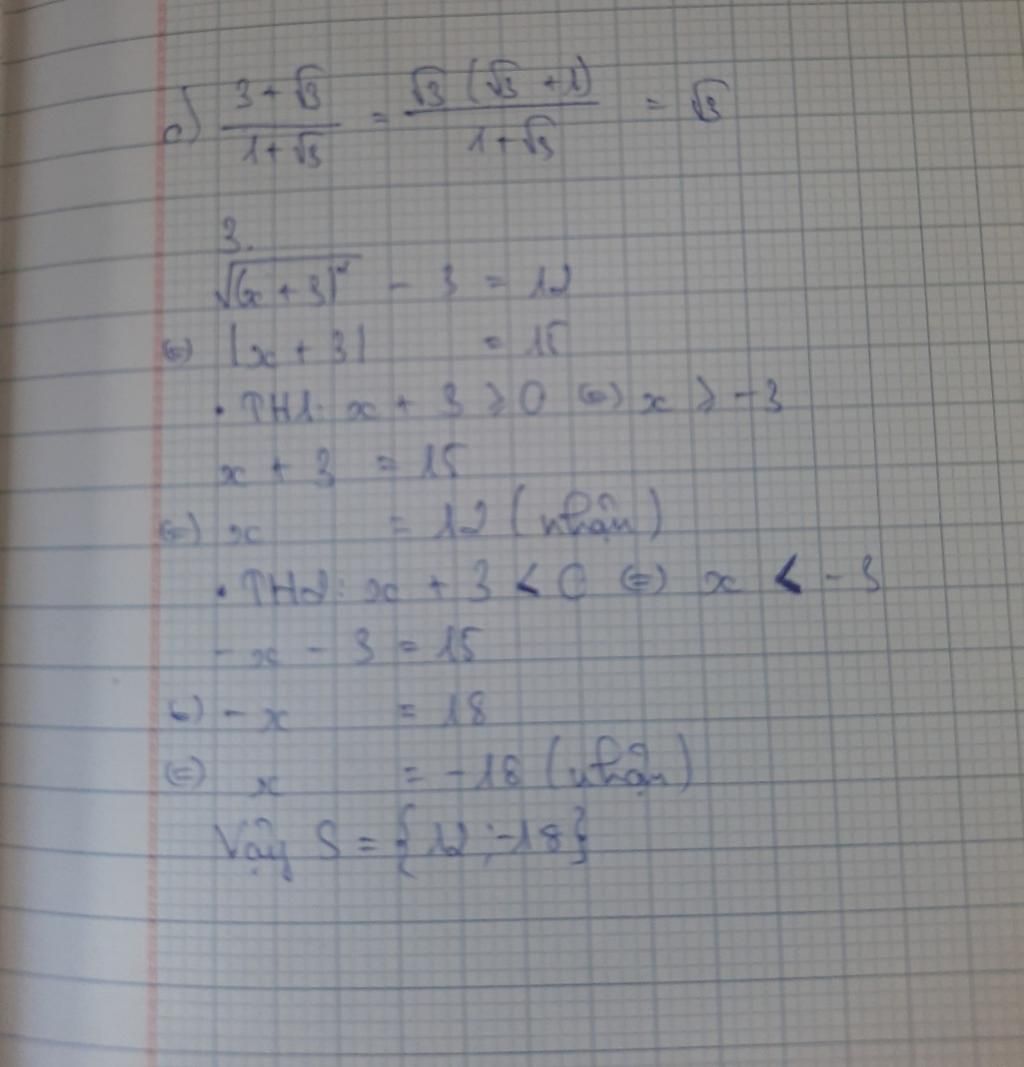 c) (3 + √3)/(1 + √3) = (√3 (√3 + 1))/(1 + √3) = √3
3.
√(x + 3)² - 3 = 12
(=) |x + 3| = 15
• TH1: x + 3 ≥ 0 (=) x ≥ -3
x + 3 = 15
(=) x = 12 (nhận)
• TH2: x + 3 < 0 (=) x < -3
-x - 3 = 15
(=) -x = 18
(=) x = -18 (nhận)
Vậy S = {12; -18}